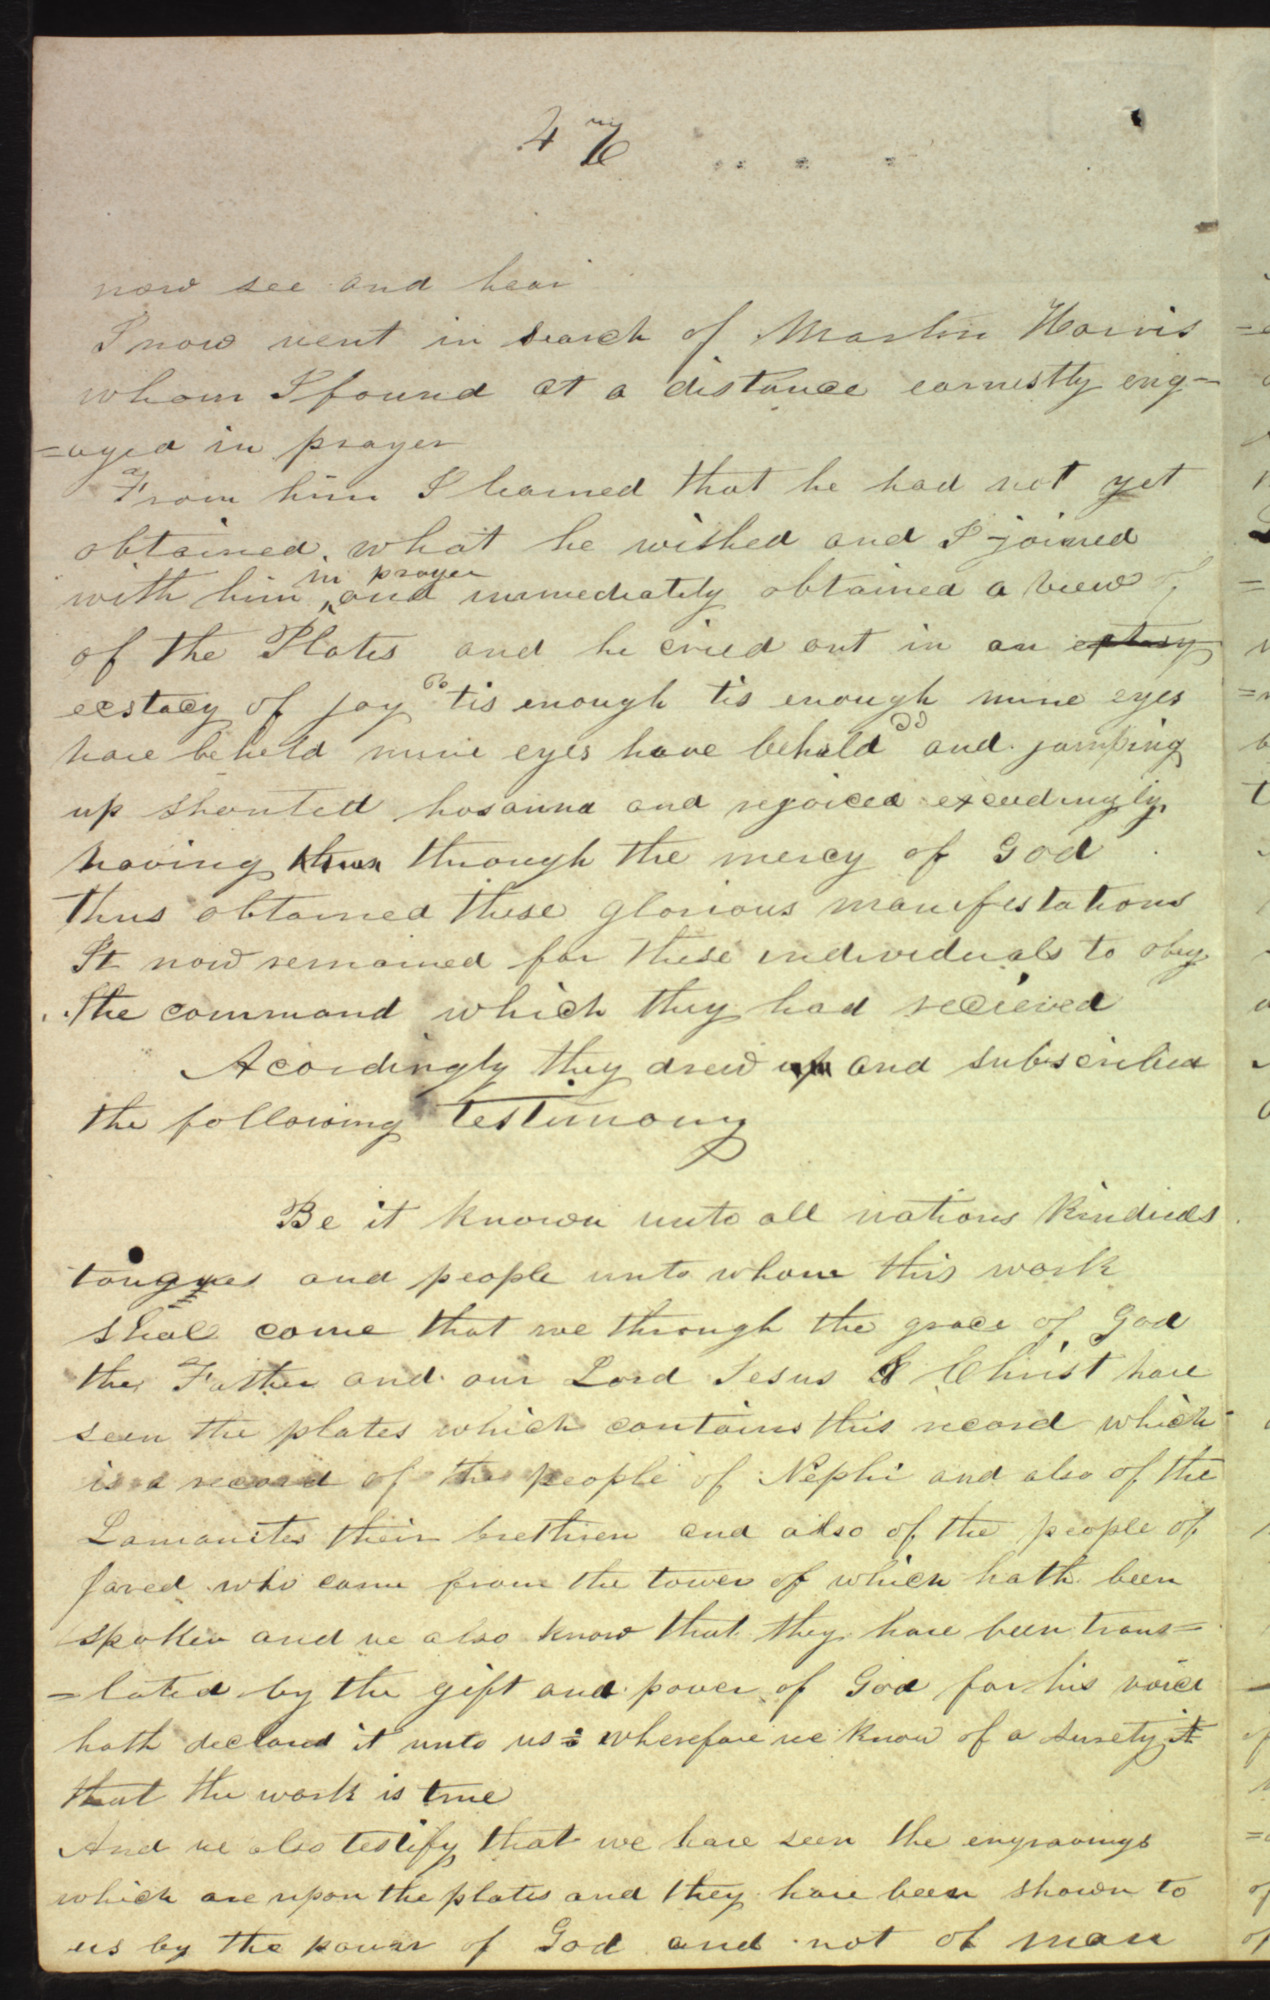 47
now see and hear
I now went in search of Martin Harris
whom I found at a distance earnestly eng=
=aged in prayer
From him I learned that he had not yet
obtained. what he wished and I joined
in prayer
with him and immediately obtained a view of
of the Plates and he cried out in an
ecstacy of joy "tis enough tis enough mine eyes
have beheld mine eyes have beheld" and jumping
up shouted hosanna and rejoiced exceedingly
having through the mercy of God
thus obtained these glorious manifestations
It now remained for these individuals to obey
the command which they had recieved
Acordingly they drew up and subscribed
the following testimony
Be it known unto all nations kindreds
tongues and people unto whom this work
shall come that we through the grace of God
the Father and our Lord Jesus Christ have
seen the plates which contains this record which
is a record of the people of Nephi and also of the
Lamanites their brethren and also of the people of
Jared who came from the tower of which hath been
spoken and we also know that they have been trans=
=lated by the gift and power of God for his voice
hath declared it unto us: wherefore we know of a surety it
that the work is true
And we also testify that we have seen the engravings
which are upon the plates and they have been shown to
us by the power of God and not of man